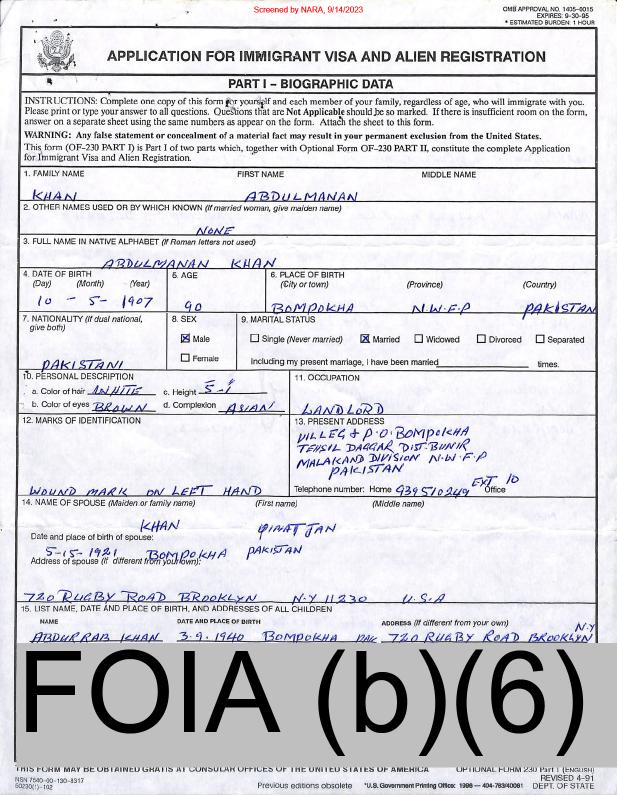 Screened by NARA, 9/14/2023
OMB APPROVAL NO. 1405-0015
EXPIRES: 9-30-95
* ESTIMATED BURDEN: 1 HOUR
APPLICATION FOR IMMIGRANT VISA AND ALIEN REGISTRATION
PART I – BIOGRAPHIC DATA
INSTRUCTIONS: Complete one copy of this form for yourself and each member of your family, regardless of age, who will immigrate with you.
Please print or type your answer to all questions. Questions that are Not Applicable should be so marked. If there is insufficient room on the form,
answer on a separate sheet using the same numbers as appear on the form. Attach the sheet to this form.
WARNING: Any false statement or concealment of a material fact may result in your permanent exclusion from the United States.
This form (OF-230 PART I) is Part I of two parts which, together with Optional Form OF-230 PART II, constitute the complete Application
for Immigrant Visa and Alien Registration.
1. FAMILY NAME FIRST NAME MIDDLE NAME
KHAN ABDULMANAN
2. OTHER NAMES USED OR BY WHICH KNOWN (If married woman, give maiden name)
NONE
3. FULL NAME IN NATIVE ALPHABET (If Roman letters not used)
ABDULMANAN KHAN
4. DATE OF BIRTH 5. AGE 6. PLACE OF BIRTH
(Day) (Month) (Year) (City or town) (Province) (Country)
10 - 5 - 1907 90 BOMPOKHA N.W.F.P PAKISTAN
7. NATIONALITY (If dual national, give both) 8. SEX 9. MARITAL STATUS
Male Single (Never married) Married Widowed Divorced Separated
Female Including my present marriage, I have been married times.
PAKISTANI
10. PERSONAL DESCRIPTION 11. OCCUPATION
a. Color of hair WHITE c. Height 5-1
b. Color of eyes BROWN d. Complexion ASIAN LANDLORD
12. MARKS OF IDENTIFICATION 13. PRESENT ADDRESS
VILLEG & P.O. BOMPOKHA
TEHSIL DAGGAR DIST. BUNIR
MALAKAND DIVISION N.W.F.P
PAKISTAN
EXT 10
WOUND MARK ON LEFT HAND Telephone number: Home 939510249 Office
14. NAME OF SPOUSE (Maiden or family name) (First name) (Middle name)
KHAN JAN
Date and place of birth of spouse:
5-15-1921 BOMPOKHA PAKISTAN
Address of spouse (If different from your own):
720 RUGBY ROAD BROOKLYN N.Y 11230 U.S.A
15. LIST NAME, DATE AND PLACE OF BIRTH, AND ADDRESSES OF ALL CHILDREN
NAME DATE AND PLACE OF BIRTH ADDRESS (If different from your own)
N.Y
ABDURRAB KHAN 3-9-1940 BOMPOKHA PAK 720 RUGBY ROAD BROOKLYN
FOIA (b)(6)
THIS FORM MAY BE OBTAINED GRATIS AT CONSULAR OFFICES OF THE UNITED STATES OF AMERICA OPTIONAL FORM 230 Part I (ENGLISH)
NSN 7540-00-130-8317 REVISED 4-91
50230(1)-102 Previous editions obsolete *U.S. Government Printing Office: 1996 — 404-763/40061 DEPT. OF STATE